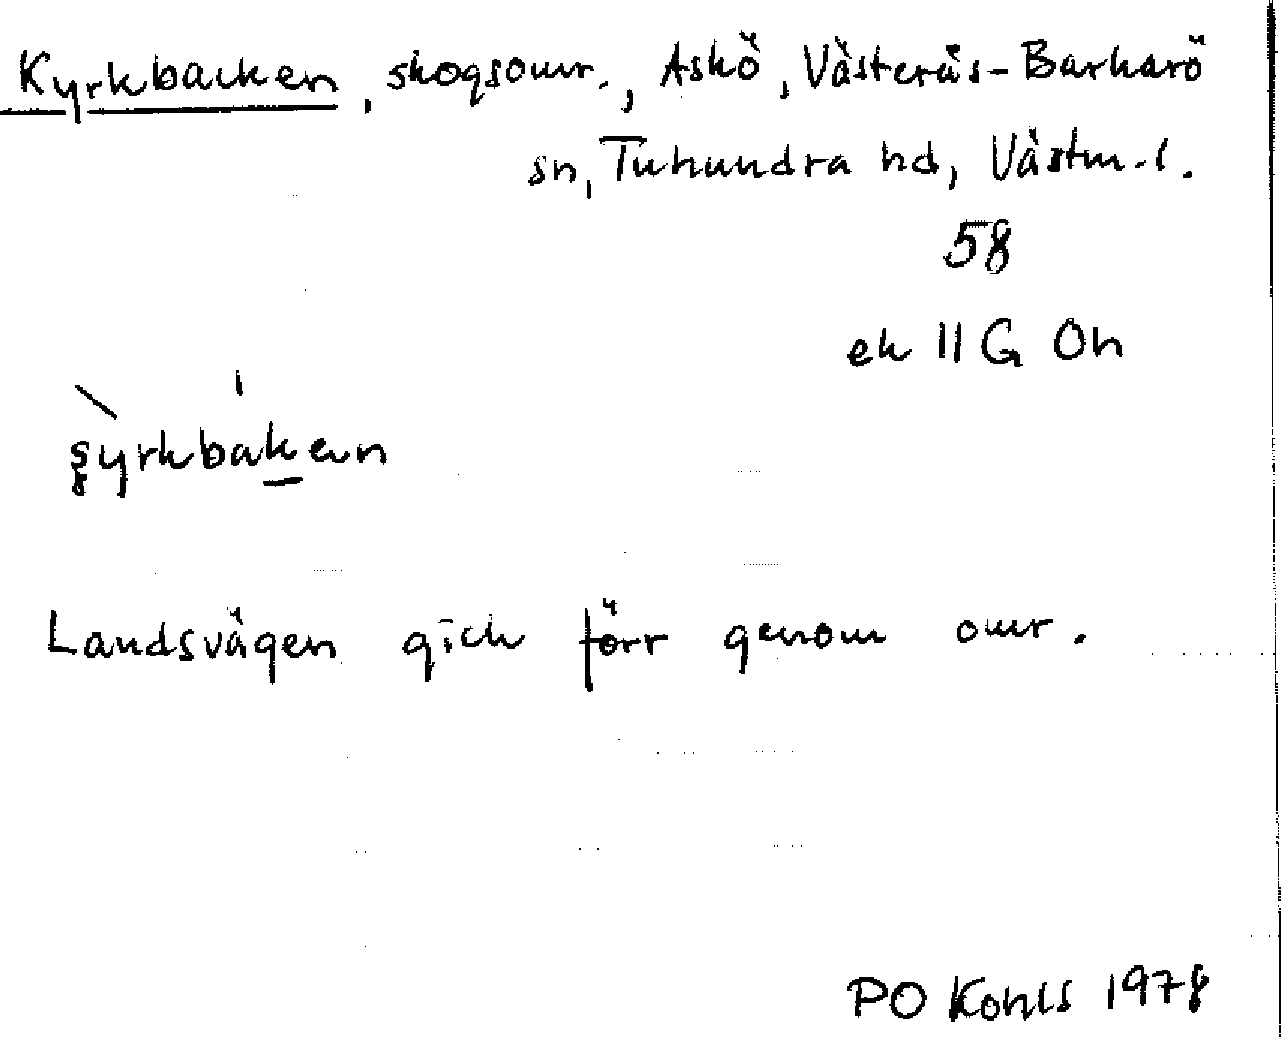 Kyrkbacken, skogsomr., Askö, Västerås-Barkarö
sn, Tuhundra hd, Västm.l.
58
ek 11 G Oh
şyrkbaken
Landsvägen gick förr genom omr.
PO 1978